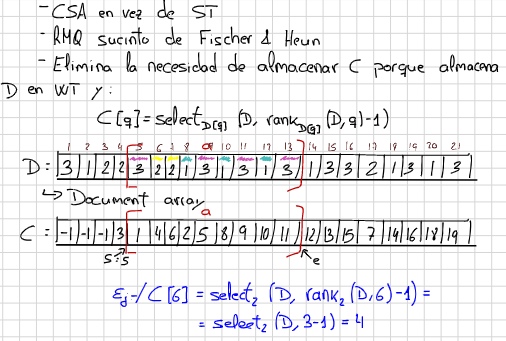 - CSA en vez de ST
- RMQ sucinto de Fischer & Heun
- Elimina la necesidad de almacenar C porque almacena
D en WT y:
C[q] = select_D[q] (D, rank_D[q] (D, q) - 1)
1 2 3 4 5 6 7 8 9 10 11 12 13 14 15 16 17 18 19 20 21
D: 3 1 2 2 3 2 2 1 3 1 3 1 3 1 3 3 2 1 3 1 3
↳ Document array
a
C = -1 -1 -1 3 1 4 6 2 5 8 9 10 11 12 13 15 7 14 16 18 19
s=5 e
Ej-/ C[6] = select₂ (D, rank₂ (D, 6) - 1) =
= select₂ (D, 3-1) = 4